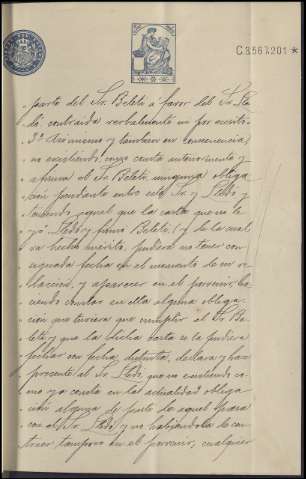 C3567,201 *
parte del Sr. Belete á favor del Sr. Lle
dó contraida verbalmente ni por escrito
3º Asimismo y tambien en consecuencia
no existiendo, como consta anteriormente y
afirma el Sr. Belete, ninguna obliga
cion pendiente entre este Sr. y Lledó y
temiendo aquel que la carta que
yó Lledó y firmó Belete, y de la cual
va hecho mérito, pudiera no tener con
signada fecha en el momento de su re
daccion, y aparecer en el porvenir, ha
ciendo constar en ella alguna obliga
cion que tuviera que cumplir el Sr. Be
lete y que la dicha carta se la pudiera
fechar con fecha distinta, declara y hace
presente al Sr. Lledó, que no existiendo, co
mo ya consta en la actualidad obliga
cion alguna de parte de aquel para
con el Sr. Lledó y no habiéndola de con
traer tampoco en el porvenir, cualquier